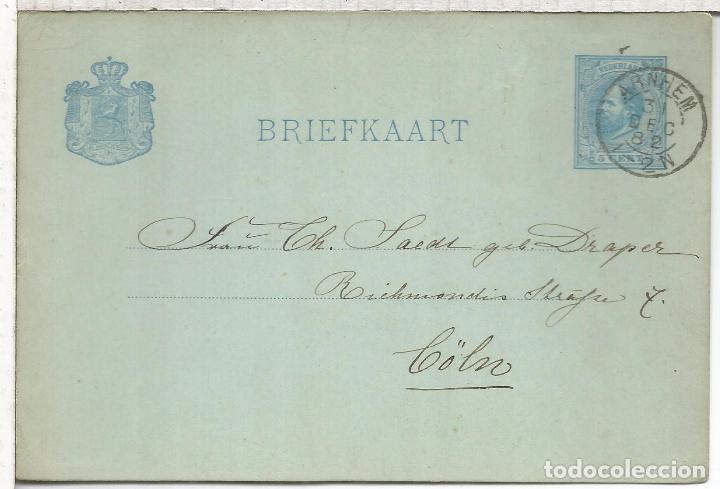 NEDERLAND
5 CENT
ARNHEM
31
DEC
82
2N
BRIEFKAART
Frau Th. Saedt geb. Draper
Richmondis Straße 7.
Cöln
todocoleccion.net